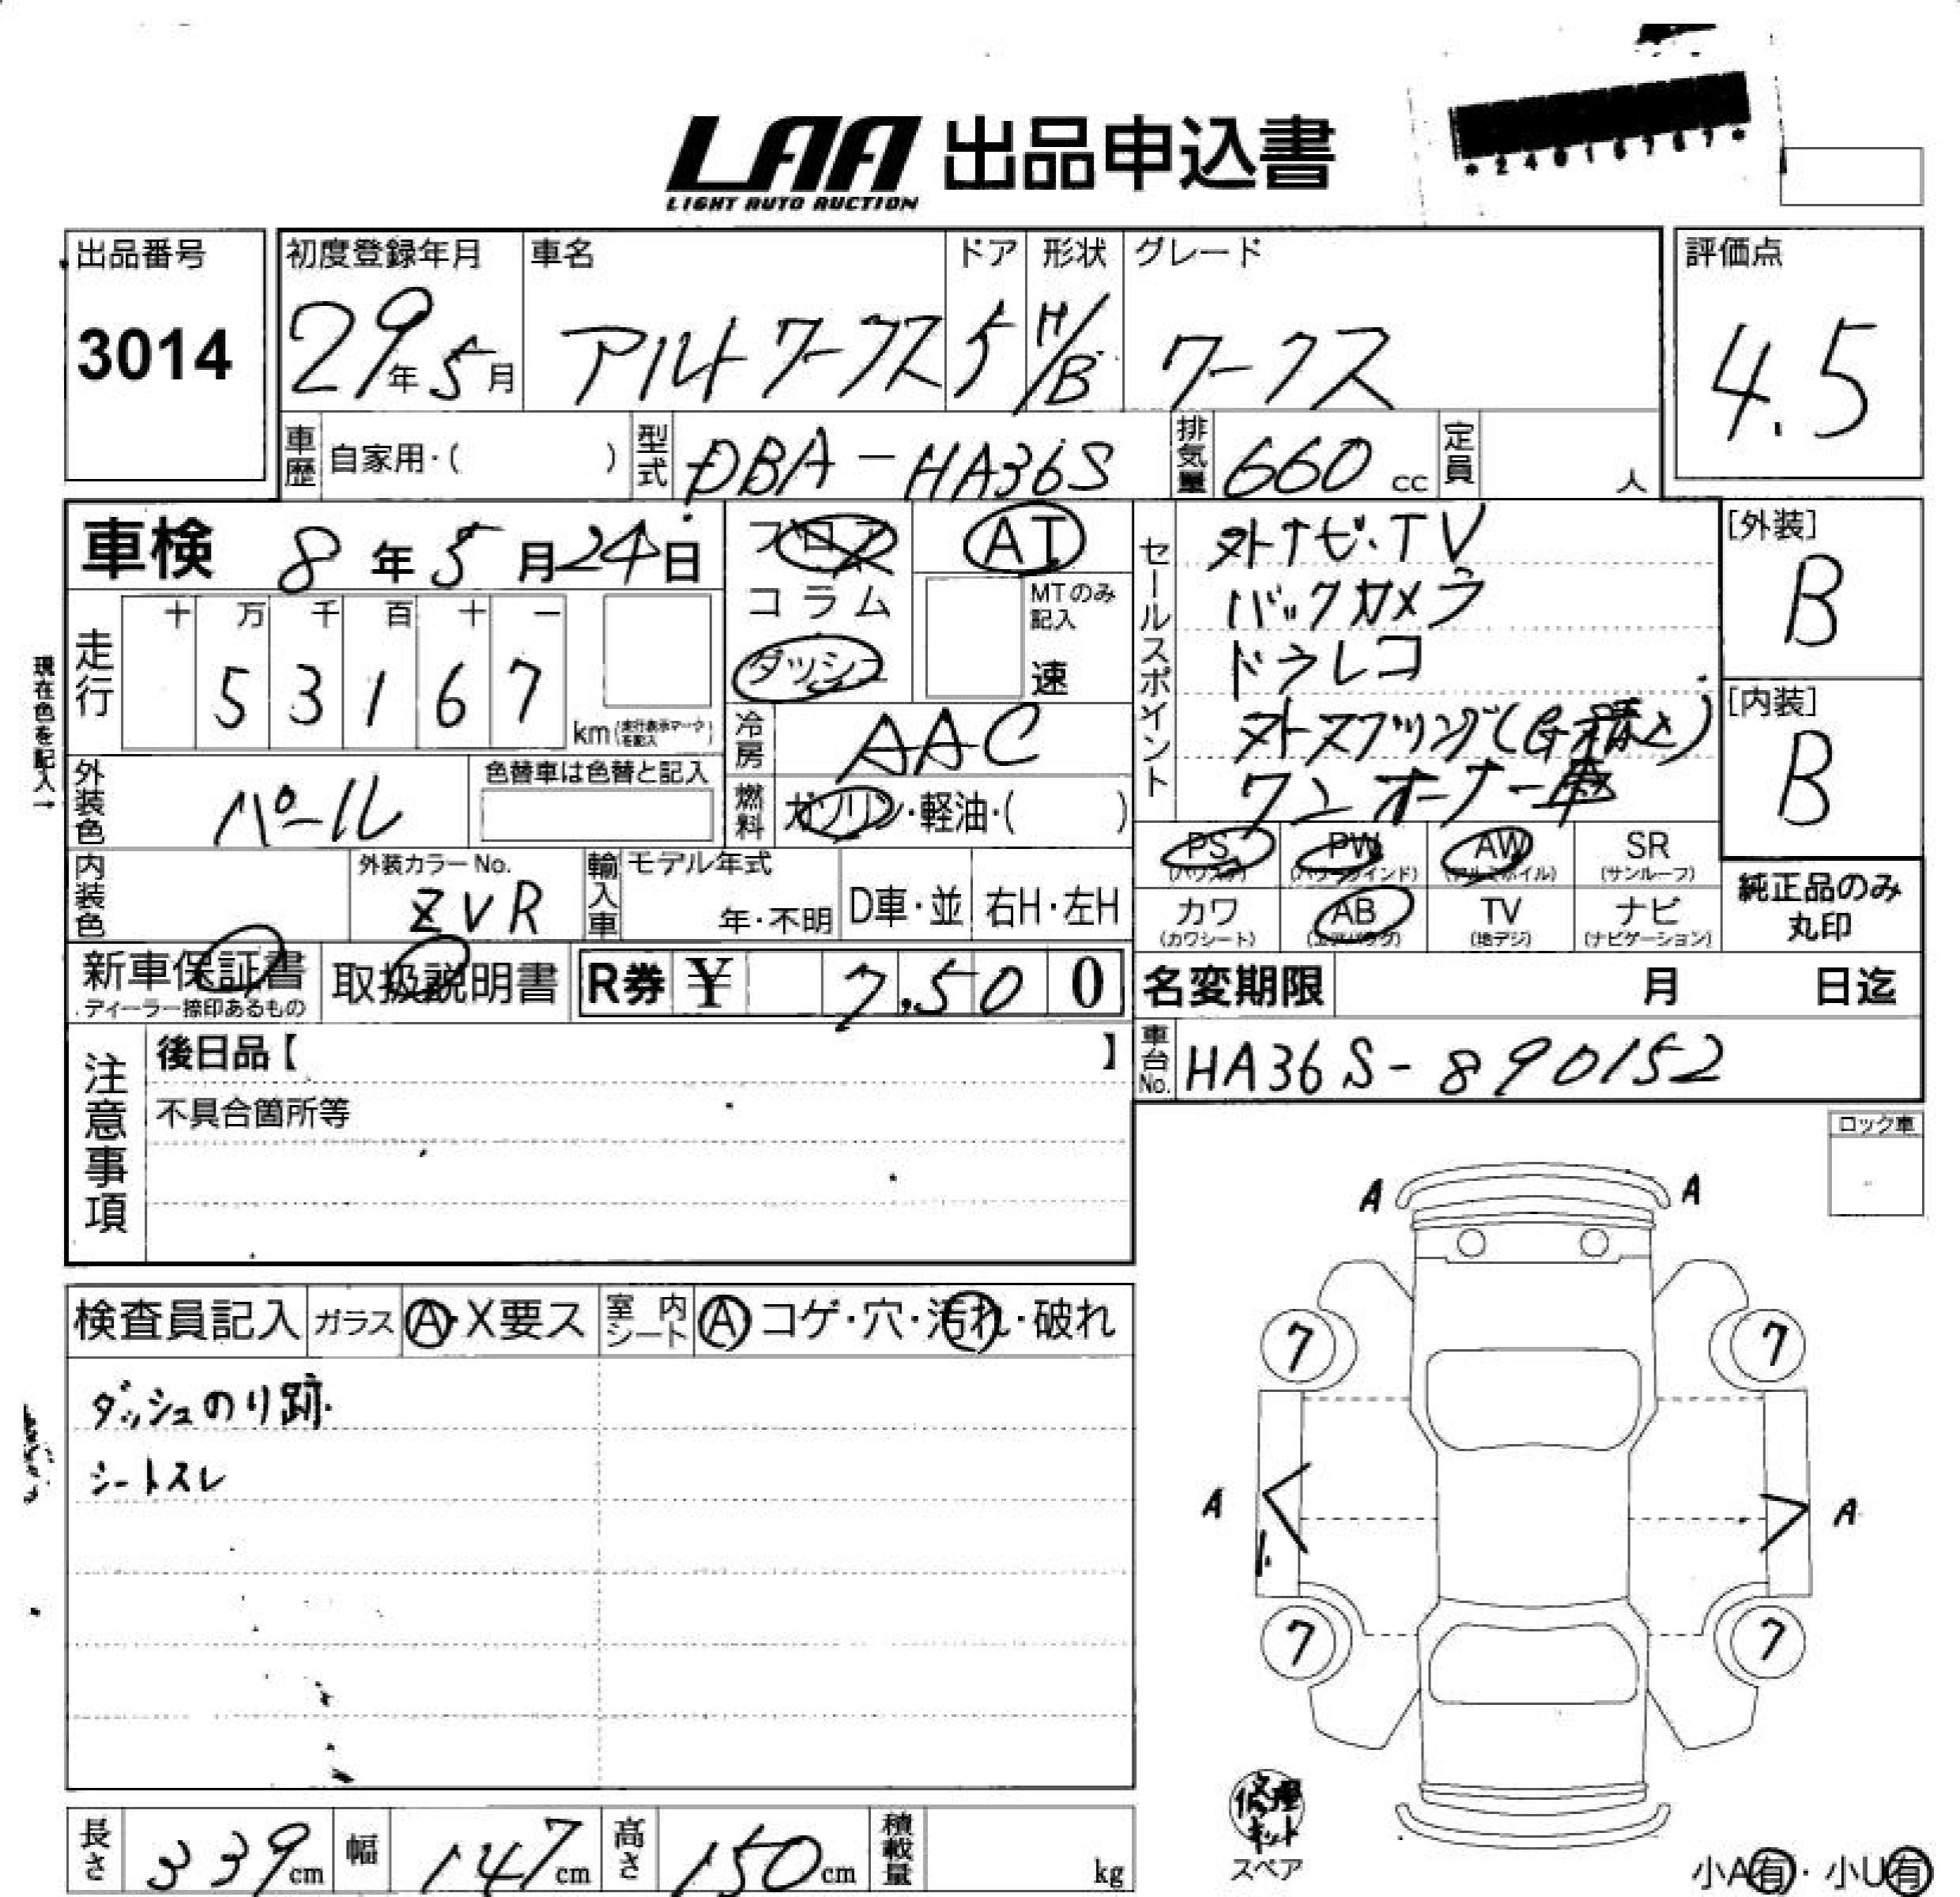 LAA 出品申込書
LIGHT AUTO AUCTION
出品番号
3014
初度登録年月
29年5月
車名
アルトワークス
ドア
5
形状
H/B
グレード
ワークス
評価点
4.5
車歴
自家用・( )
型式
DBA-HA36S
排気量
660 cc
定員
人
車検 8年5月24日
フロア
コラム
ダッシュ
AT
MTのみ記入
速
セールスポイント
外ナビ・TV
バックカメラ
ドラレコ
外スプリング(G積込)
ワンオーナー車
[外装]
B
[内装]
B
現在色を記入→
走行
十 万 千 百 十 一
5 3 1 6 7
km(走行表示マークを記入)
冷房
AAC
外装色
パール
色替車は色替と記入
燃料
ガソリン・軽油・( )
PS PW AW SR
(パワステ) (パワーウインド) (アルミホイル) (サンルーフ)
カワ AB TV ナビ
(カワシート) (エアバック) (地デジ) (ナビゲーション)
純正品のみ
丸印
内装色
外装カラーNo.
ZVR
輸入車
モデル年式
年・不明
D車・並
右H・左H
新車保証書
ディーラー捺印あるもの
取扱説明書
R券 ¥ 7,500
名変期限 月 日迄
車台No.
HA36S-890152
注意事項
後日品【 】
不具合箇所等
ロック車
検査員記入
ガラス
A・X要ス
室内シート
A コゲ・穴・汚れ・破れ
ダッシュのり跡.
シートスレ
A A
7 7
A A
7 7
修理
キット
スペア
長さ 339cm
幅 147cm
高さ 150cm
積載量 kg
小A有・小U有